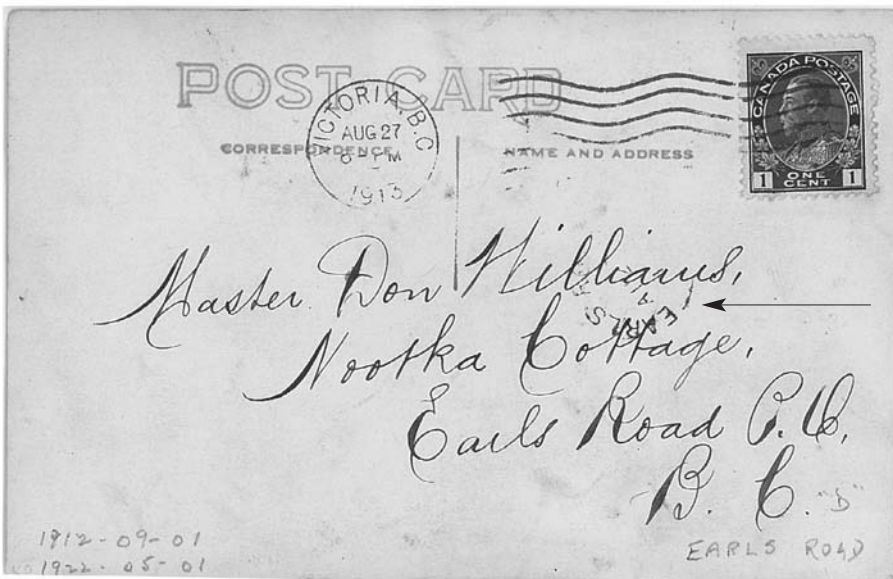 POST CARD
VICTORIA, B.C
AUG 27
PM
1913
CORRESPONDENCE
NAME AND ADDRESS
CANADA POSTAGE
1 ONE CENT 1
Master Don Williams,
EARLS
Nootka Cottage,
Earls Road P.O,
B. C. "D"
1912-09-01
1922-05-01
EARLS ROAD